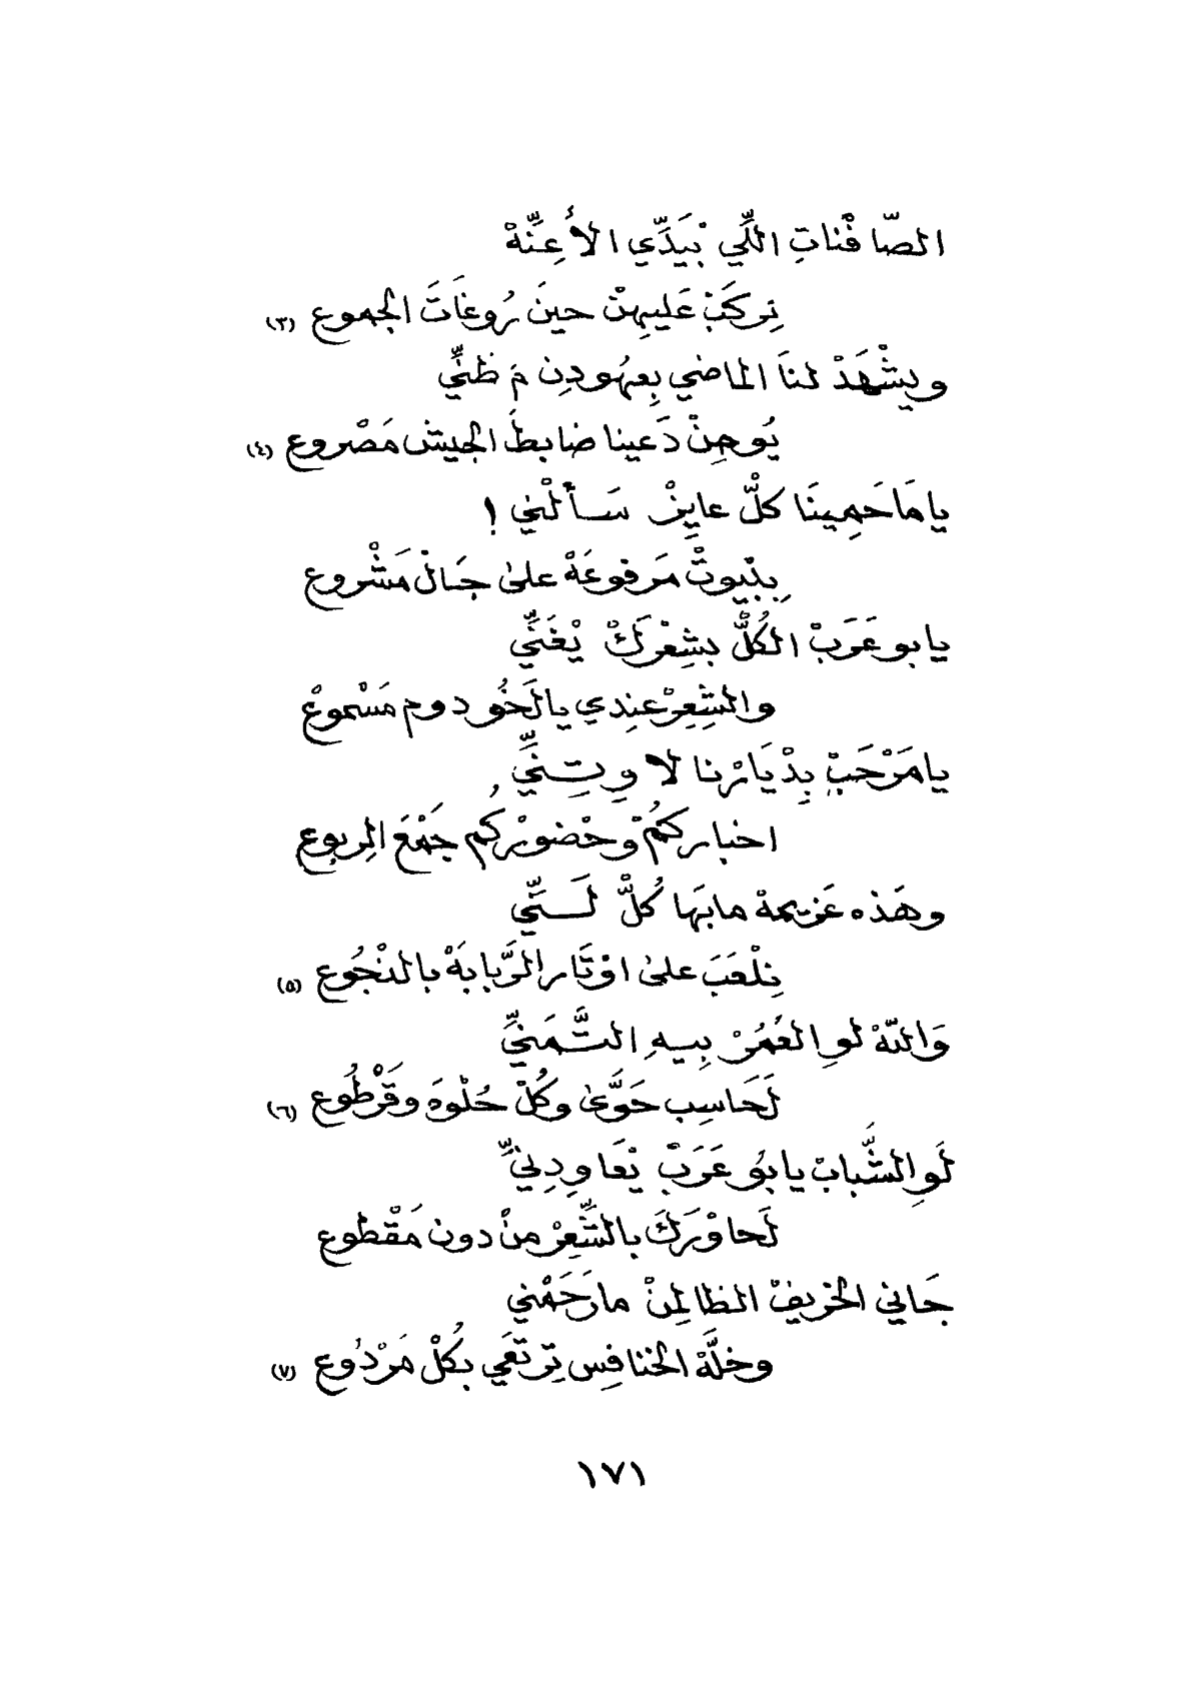 الصّافْناتِ اللِّي بْيَدِّي الأَعِنِّهْ
نِركَبْ عَليهِنْ حينَ رُوغَاتَ الجموع (٣)
ويشْهَدْ لنَا الماضي بِعهُودِن مَ ظنِّي
يُوحِنْ دَعينا ضابطَ الجيش مَصْروع (٤)
ياما حَمِينَا كلّْ عايِزْ سَألْني !
بِبْيوتْ مَرفوعَهْ على جَالْ مَشْروع
يابو عَرَبْ الكُلّْ بشِعْرَكْ يْغَنِّي
والشِعِرْ عنِدي يالَخُو دوم مَسْموعْ
يا مَرْحَبْ بِدْيَارْنا لا وِتِنِّي
اخباركمُ وحْضورْكُم جَمْعَ الربوع
وهَذه عَزيمهْ مابَها كُلّْ لَسَنِّي
نِلْعَبَ على اوْتَار الرَّبابَهْ بالنْجُوع (٥)
وَاللهْ لوِ العُمُرْ بِيهِ التَّمَنِّي
لَحَاسِب حَوَّى وكُلْ حُلْوَه وقَرْطُوع (٦)
لَوِ الشَّبابْ يابُو عَرَبْ يْعَاوِدِنِّي
لَحاوْرَكَ بالشِّعِرْ منْ دون مَقْطوع
جَاني الخريفْ الظالِمنْ مارَحَمْني
وخلَّهْ الخنافِس تِرتعَي بكُلْ مَرْدُوع (٧)
١٧١